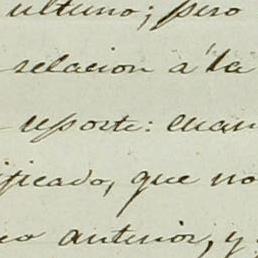 ultimo; pero
relacion á la
reporte: cuan
ificado, que no
anterior, y